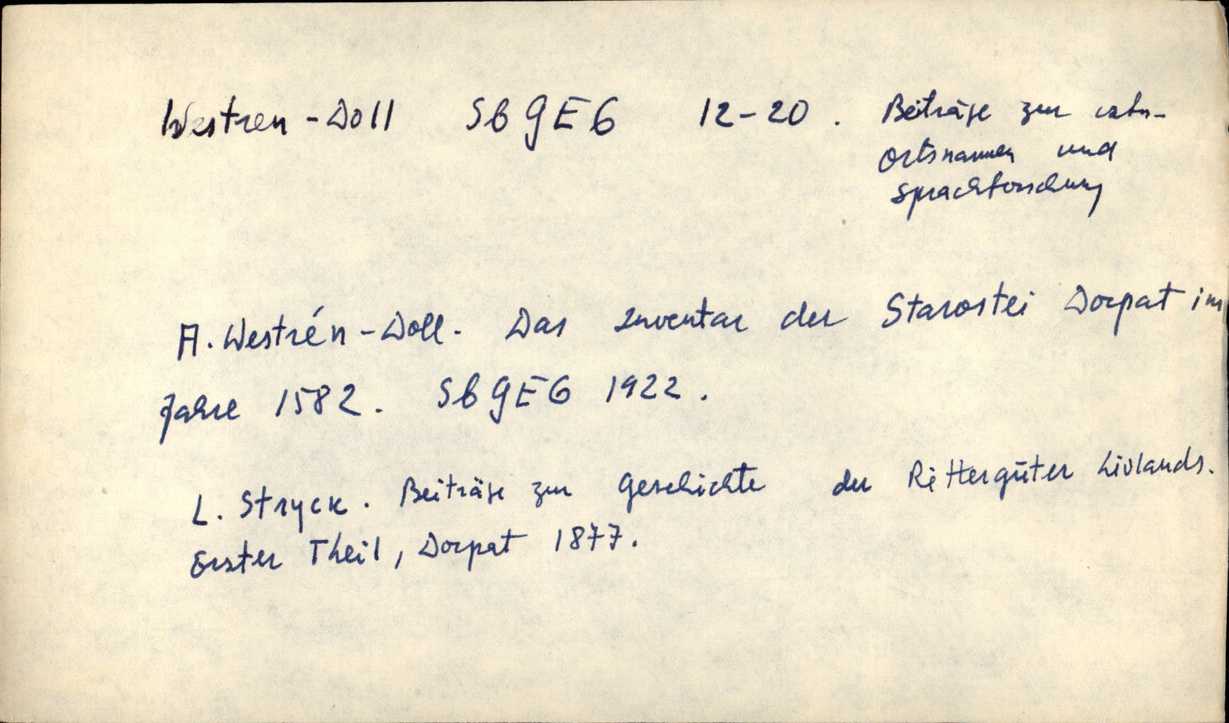 Westren-Doll SbGEG 12-20. Beiträge zur estn-
Ortsnamen und
Sprachforschung
A. Westrén-Doll. Das Inventar der Starostei Dorpat im
Jahre 1582. SbGEG 1922.
L. Stryck. Beiträge zur Geschichte der Rittergüter Livlands.
Erster Theil, Dorpat 1877.